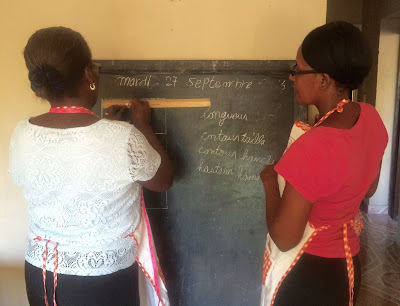 mardi - 27 septembre -
longueur
contour taille
contour hanche
hauteur hanche